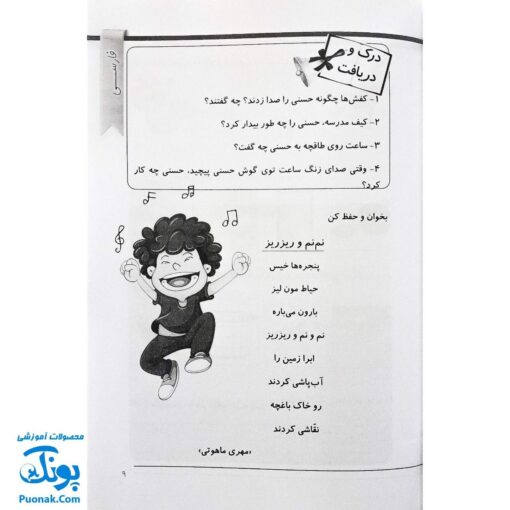 فارسی
درک و
دریافت
۱- کفش‌ها چگونه حسنی را صدا زدند؟ چه گفتند؟
۲- کیف مدرسه، حسنی را چه طور بیدار کرد؟
۳- ساعت روی طاقچه به حسنی چه گفت؟
۴- وقتی صدای زنگ ساعت توی گوش حسنی پیچید، حسنی چه کار
کرد؟
بخوان و حفظ کن
نم‌نم و ریزریز
پنجره‌ها خیس
حیاط مون لیز
بارون می‌باره
نم و نم و ریزریز
ابرا زمین را
آب‌پاشی کردند
رو خاک باغچه
نقّاشی کردند
«مهری ماهوتی»
۹
محصولات آموزشی
پونک
Puonak.Com